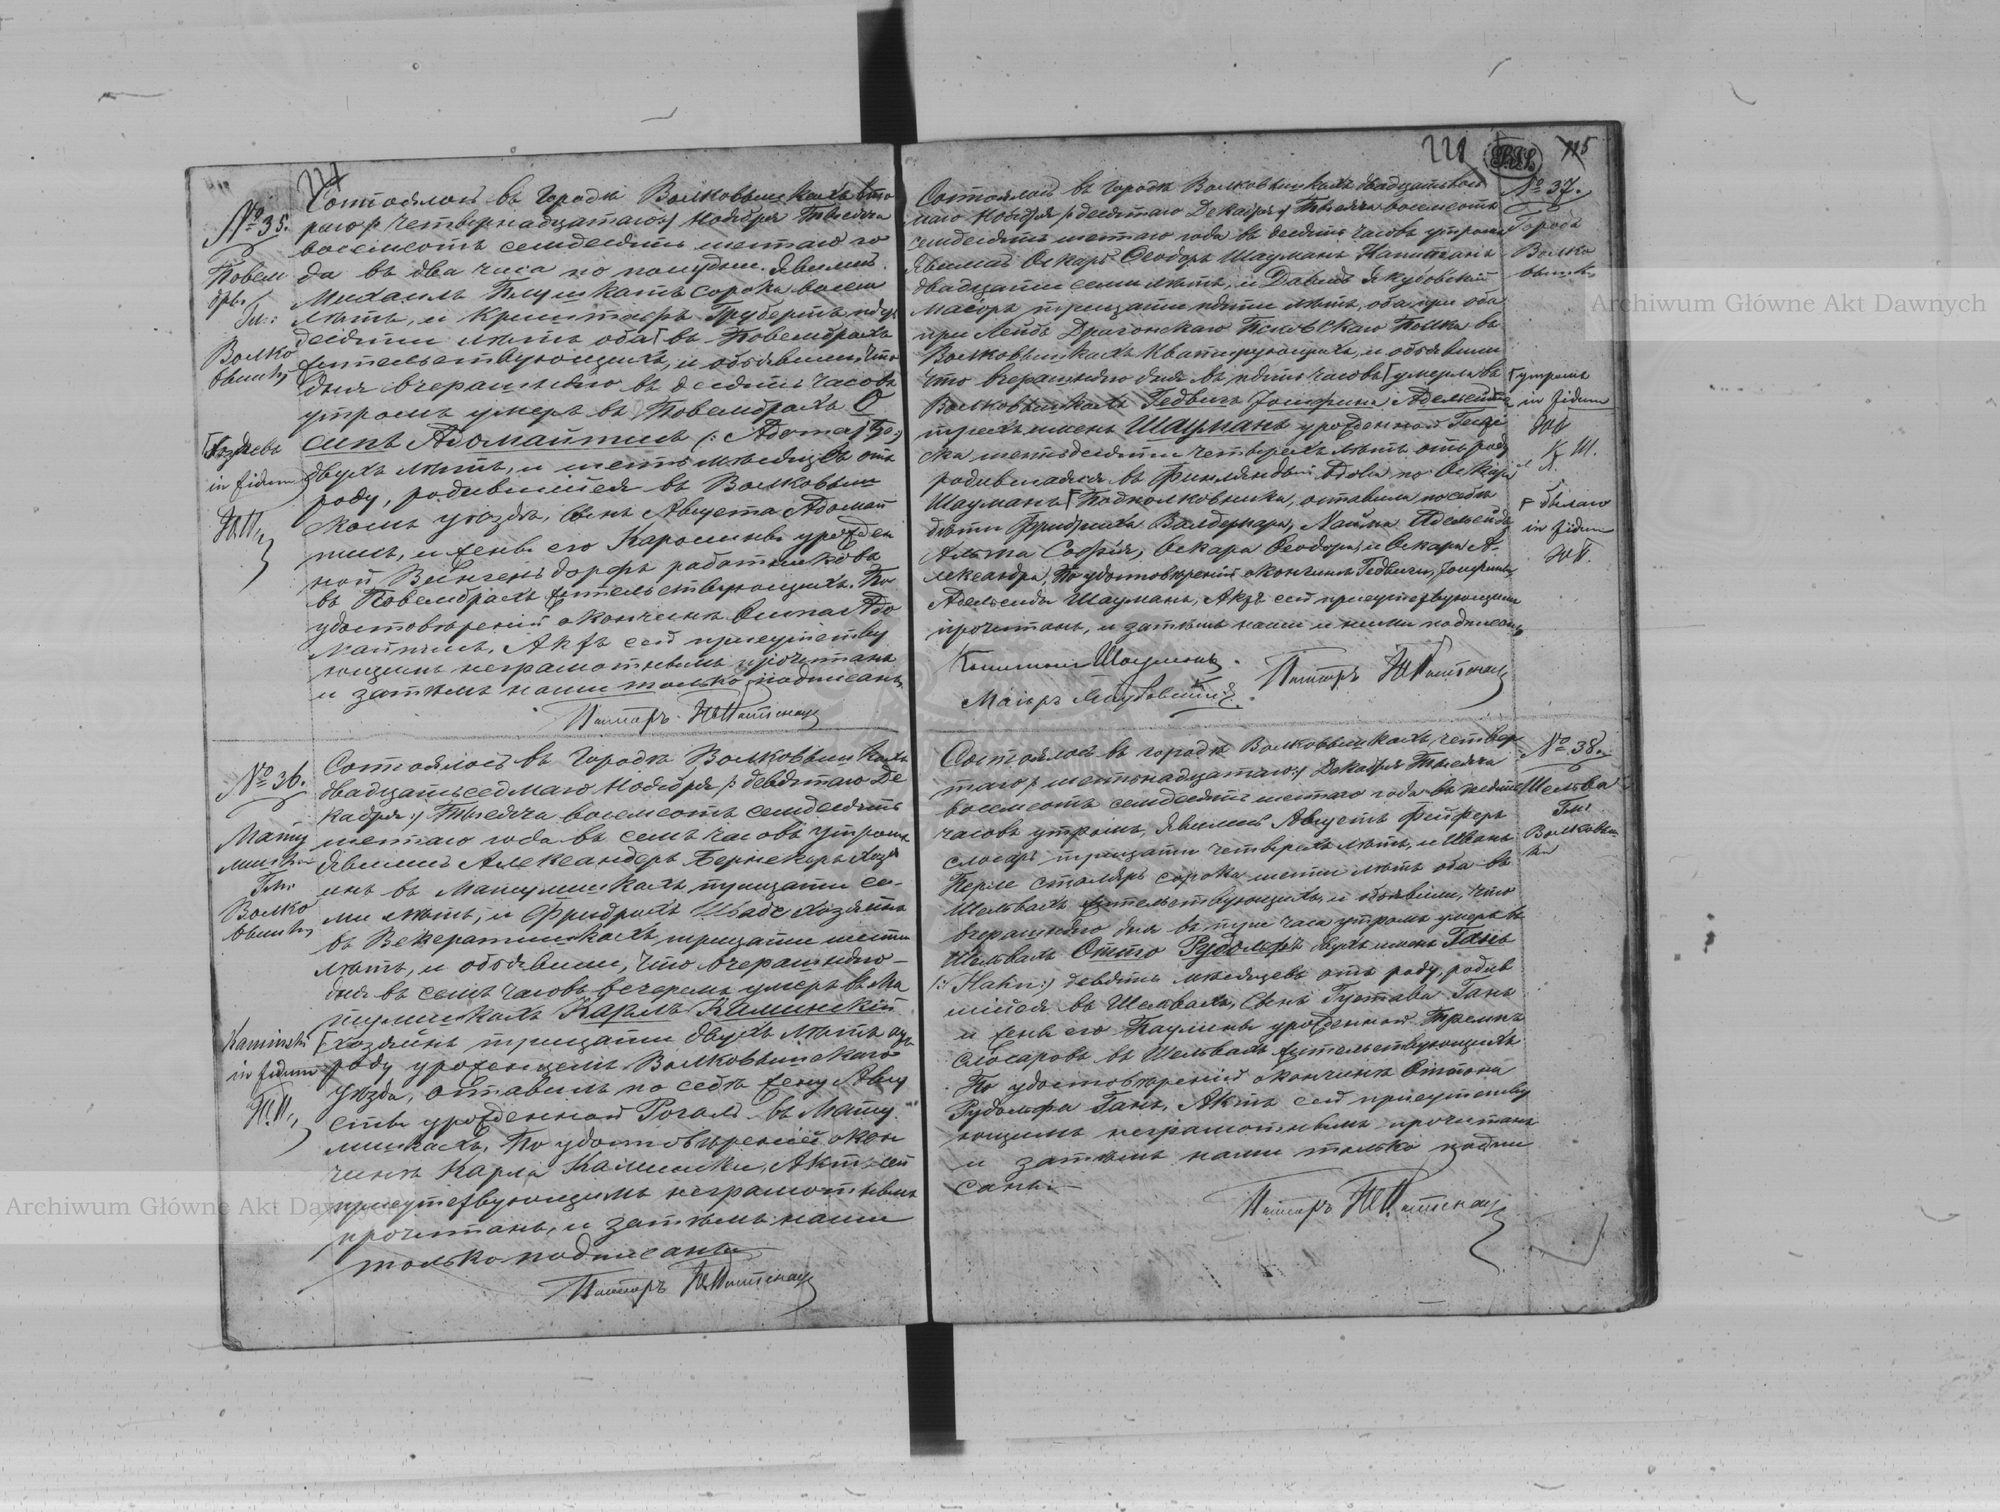 № 35.
Повем
бры
Гм:
Волко
вышки
in fidem
Состоялось въ Городѣ Волковышкахъ вто
раго /: четырнадцатаго :/ Ноября Тысяча
восемьсотъ семьдесятъ шестаго го
да въ два часа по полудни. Явились
Михаилъ Плушкатъ сорока восьми
лѣтъ, и Кристофъ Грубертъ
десяти лѣтъ оба въ Повембрахъ
жительствующихъ, и объявили что
дня вчерашняго въ десять часовъ
утромъ умеръ въ Повембрахъ О
сипъ Адомайтисъ (: Adomajtis :)
двухъ лѣтъ, и шесть мѣсяцевъ отъ
роду, родившійся въ Волковыш
скомъ уѣздѣ, сынъ Августа Адомай
тиса, и жены его Каролины урожден
ной Венгендорфъ работниковъ
въ Повембрахъ жительствующихъ. По
удостовѣреніи о кончинѣ Осипа Адо
майтиса, Актъ сей присутству
ющимъ неграмотнымъ прочитанъ
и затѣмъ нами только подписанъ.
Пасторъ
№ 36.
Мату
лишки
Гм:
Волко
вышки
Kaminski
in fidem
Состоялось въ Городѣ Волковышкахъ
двадцать седьмаго Ноября /: девятаго Де
кабря :/ Тысяча восемьсотъ семьдесятъ
шестаго года въ семь часовъ утромъ
Явились Александеръ Бернекеръ хозя
инъ въ Матулишкахъ тридцати се-
ми лѣтъ, и Фридрихъ Швабе хозяинъ
въ Векератишкахъ тридцати шести
лѣтъ, и объявили, что вчерашняго
дня въ семь часовъ вечеромъ умеръ въ Ма
тулишкахъ Карлъ Каминскій
хозяинъ тридцати двухъ лѣтъ отъ
роду уроженецъ Волковышскаго
уѣзда, оставилъ по себѣ жену Авгу
сту урожденной Рогалъ въ Мату
лишкахъ, По удостовѣреніи о кон
чинѣ Карла Камински, Актъ сей
присутствующимъ неграмотнымъ
прочитанъ, и затѣмъ нами
только подписанъ
Пасторъ
221
115
№ 37.
Городъ
Волко
вышки
утромъ
in fidem
К. Ш.
бывшаго
in fidem
Состоялось въ городѣ Волковышкахъ двадцать вось
маго Ноября /: десятаго Декабря :/ Тысяча восемьсотъ
семьдесятъ шестаго года въ десять часовъ утромъ
Явились Оскаръ Феодоръ Шауманъ Капитанъ
двадцати семи лѣтъ, и Давидъ Якубовскій
Маіоръ тридцати пяти лѣтъ, оба при
при Лейбъ Драгонскаго Псковскаго Полка въ
Волковышкахъ Квартирующихъ, и объявили
что вчерашняго дня въ пять часовъ умерла въ
Волковышкахъ Гедвигъ Іозефина Аделейда
трехъ именъ Шауманъ урожденной
шестьдесятъ четырехъ лѣтъ отъ роду
родившаяся въ Финляндіи Вдова по Оскарѣ
Шауманъ Подполковника, оставила по себѣ
дѣти Фридриха Валдемара, Найма Аделейда
Альма Софія, Оскара Феодора, и Оскара А-
лександра, По удостовѣреніи о кончинѣ Гедвиги, Іозефины,
Аделейды Шауманъ, Актъ сей присутствующимъ
прочитанъ, и затѣмъ нами и ними подписанъ
Капитанъ Шауманъ.
Маіоръ Якубовскій.
Пасторъ
№ 38.
Шельва
Гм:
Волковыш
ки
Состоялось въ городѣ Волковышкахъ, четвер
таго /: шестнадцатаго :/ Декабря Тысяча
восемьсотъ семьдесятъ шестаго года въ десять
часовъ утромъ, Явились Августъ Фейферъ
слесарь тридцати четырехъ лѣтъ, и Иванъ
Перле столяръ сорока шести лѣтъ оба въ
Шельвахъ жительствующихъ, и объявили, что
вчерашняго дня въ три часа утромъ умеръ въ
Шельвахъ Отто Рудольфъ двухъ именъ Ганъ
/: Hahn :/ девять мѣсяцевъ отъ роду, родив
шійся въ Шельвахъ, Сынъ Густава Ганъ
и жены его Паулины урожденной Тремпъ
Слесаровъ въ Шельвахъ жительствующихъ
По удостовѣреніи о кончинѣ Оттона
Рудольфа Ганъ, Актъ сей присутству
ющимъ неграмотнымъ прочитанъ
и затѣмъ нами только подпи
санъ.
Пасторъ
Archiwum Główne Akt Dawnych
Archiwum Główne Akt Dawnych